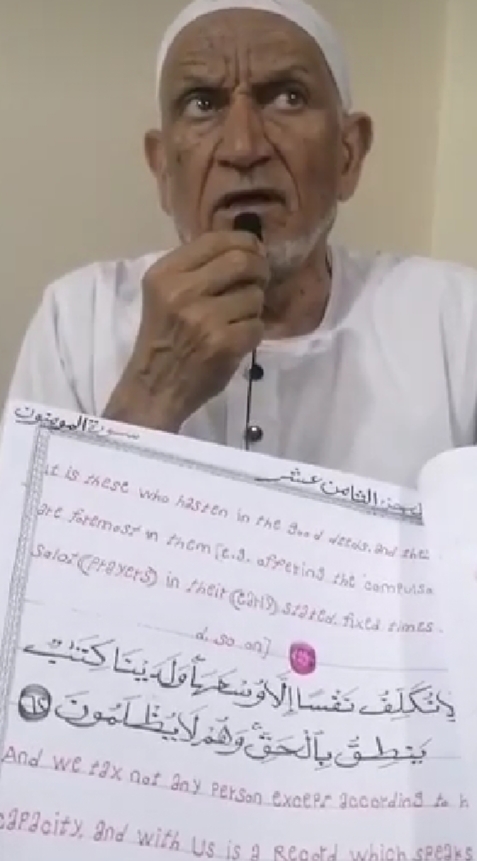 سورة المومنون
الجزء الثامن عشر
it is these who hasten in the good deeds, and they
are foremost in them [e.g. offering the compulso
salat (prayers) in their (early) stated, fixed times.
d. so on]
وَلَا نُكَلِّفُ نَفْسًا إِلَّا وُسْعَهَا وَلَدَيْنَا كِتَٰبٌ
يَنطِقُ بِٱلْحَقِّ وَهُمْ لَا يُظْلَمُونَ ٦٢
And we tax not any person except according to h
capacity, and with Us is a Record which speaks